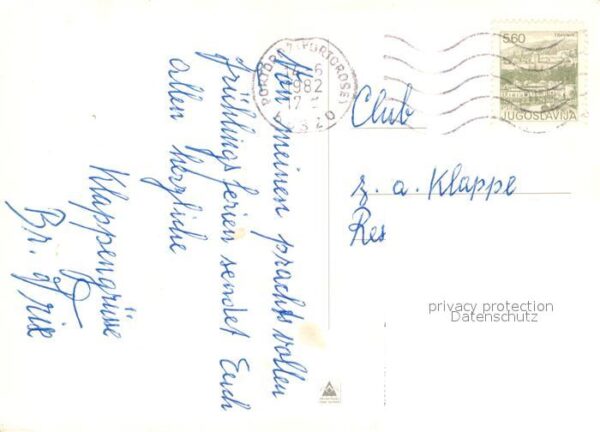 Von meinen prachtvollen
Frühlingsferien sendet Euch
allen herzliche
Klappengrüsse
Br.
PORTOROŽ (PORTOROSE)
1982
17
5.60
TRAVNIK
JUGOSLAVIJA
Club
z. a. Klappe
Res
privacy protection
Datenschutz